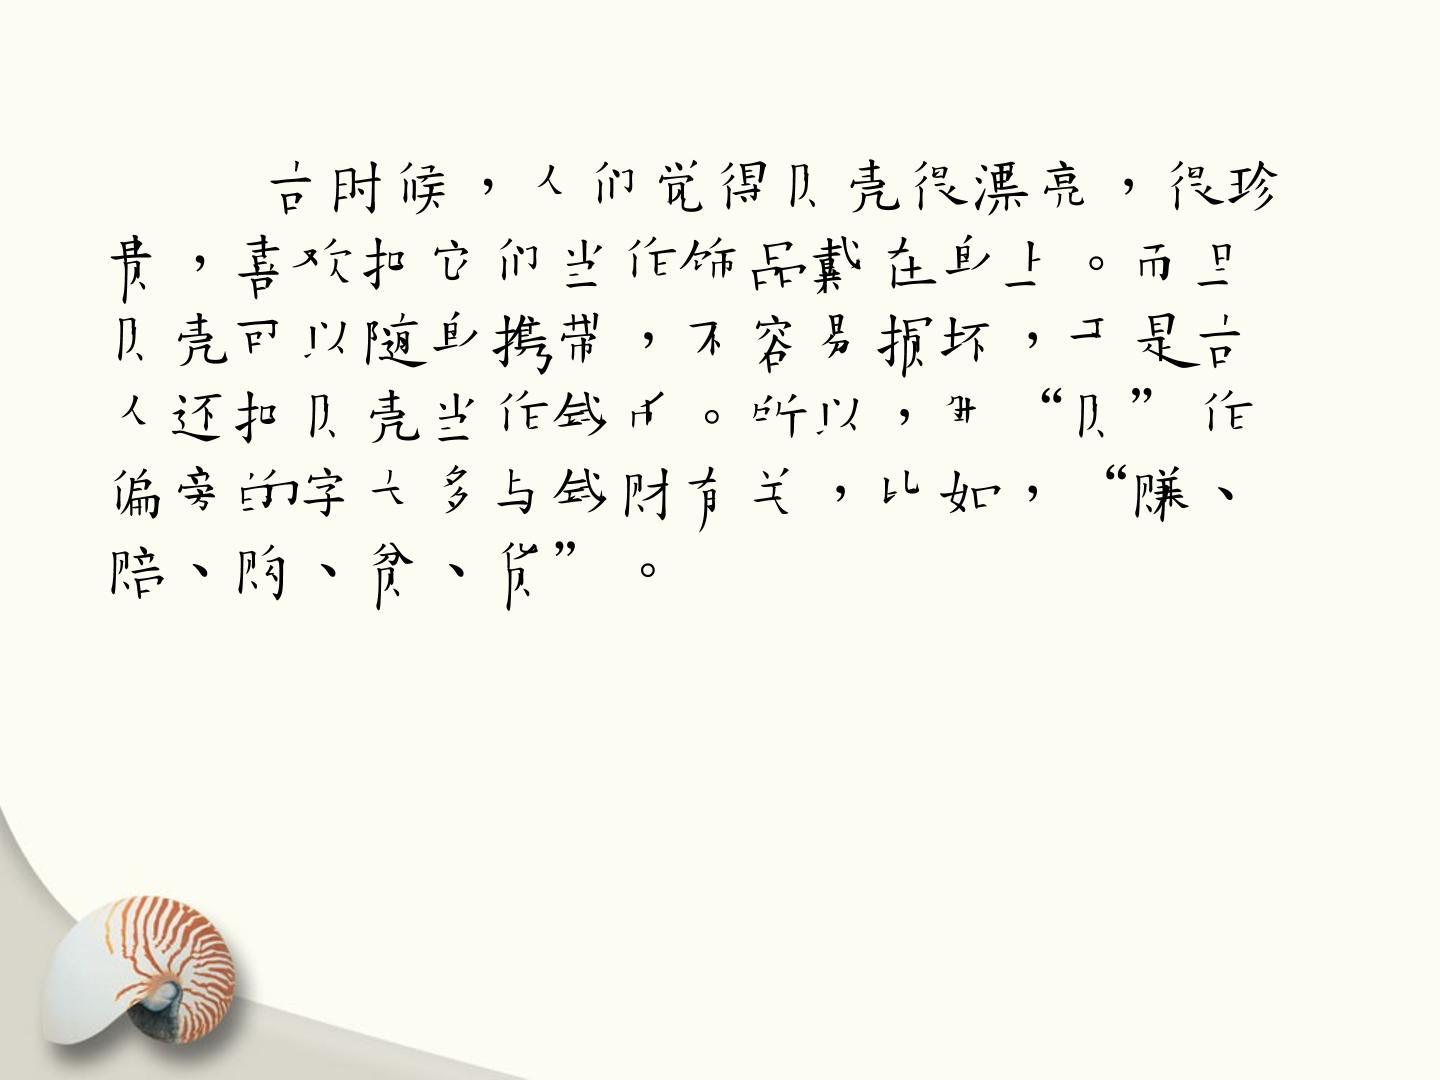 古时候，人们觉得贝壳很漂亮，很珍
贵，喜欢把它们当作饰品戴在身上。而且
贝壳可以随身携带，不容易损坏，于是古
人还把贝壳当作钱币。所以，用“贝”作
偏旁的字大多与钱财有关，比如，“赚、
赔、购、贫、货”。